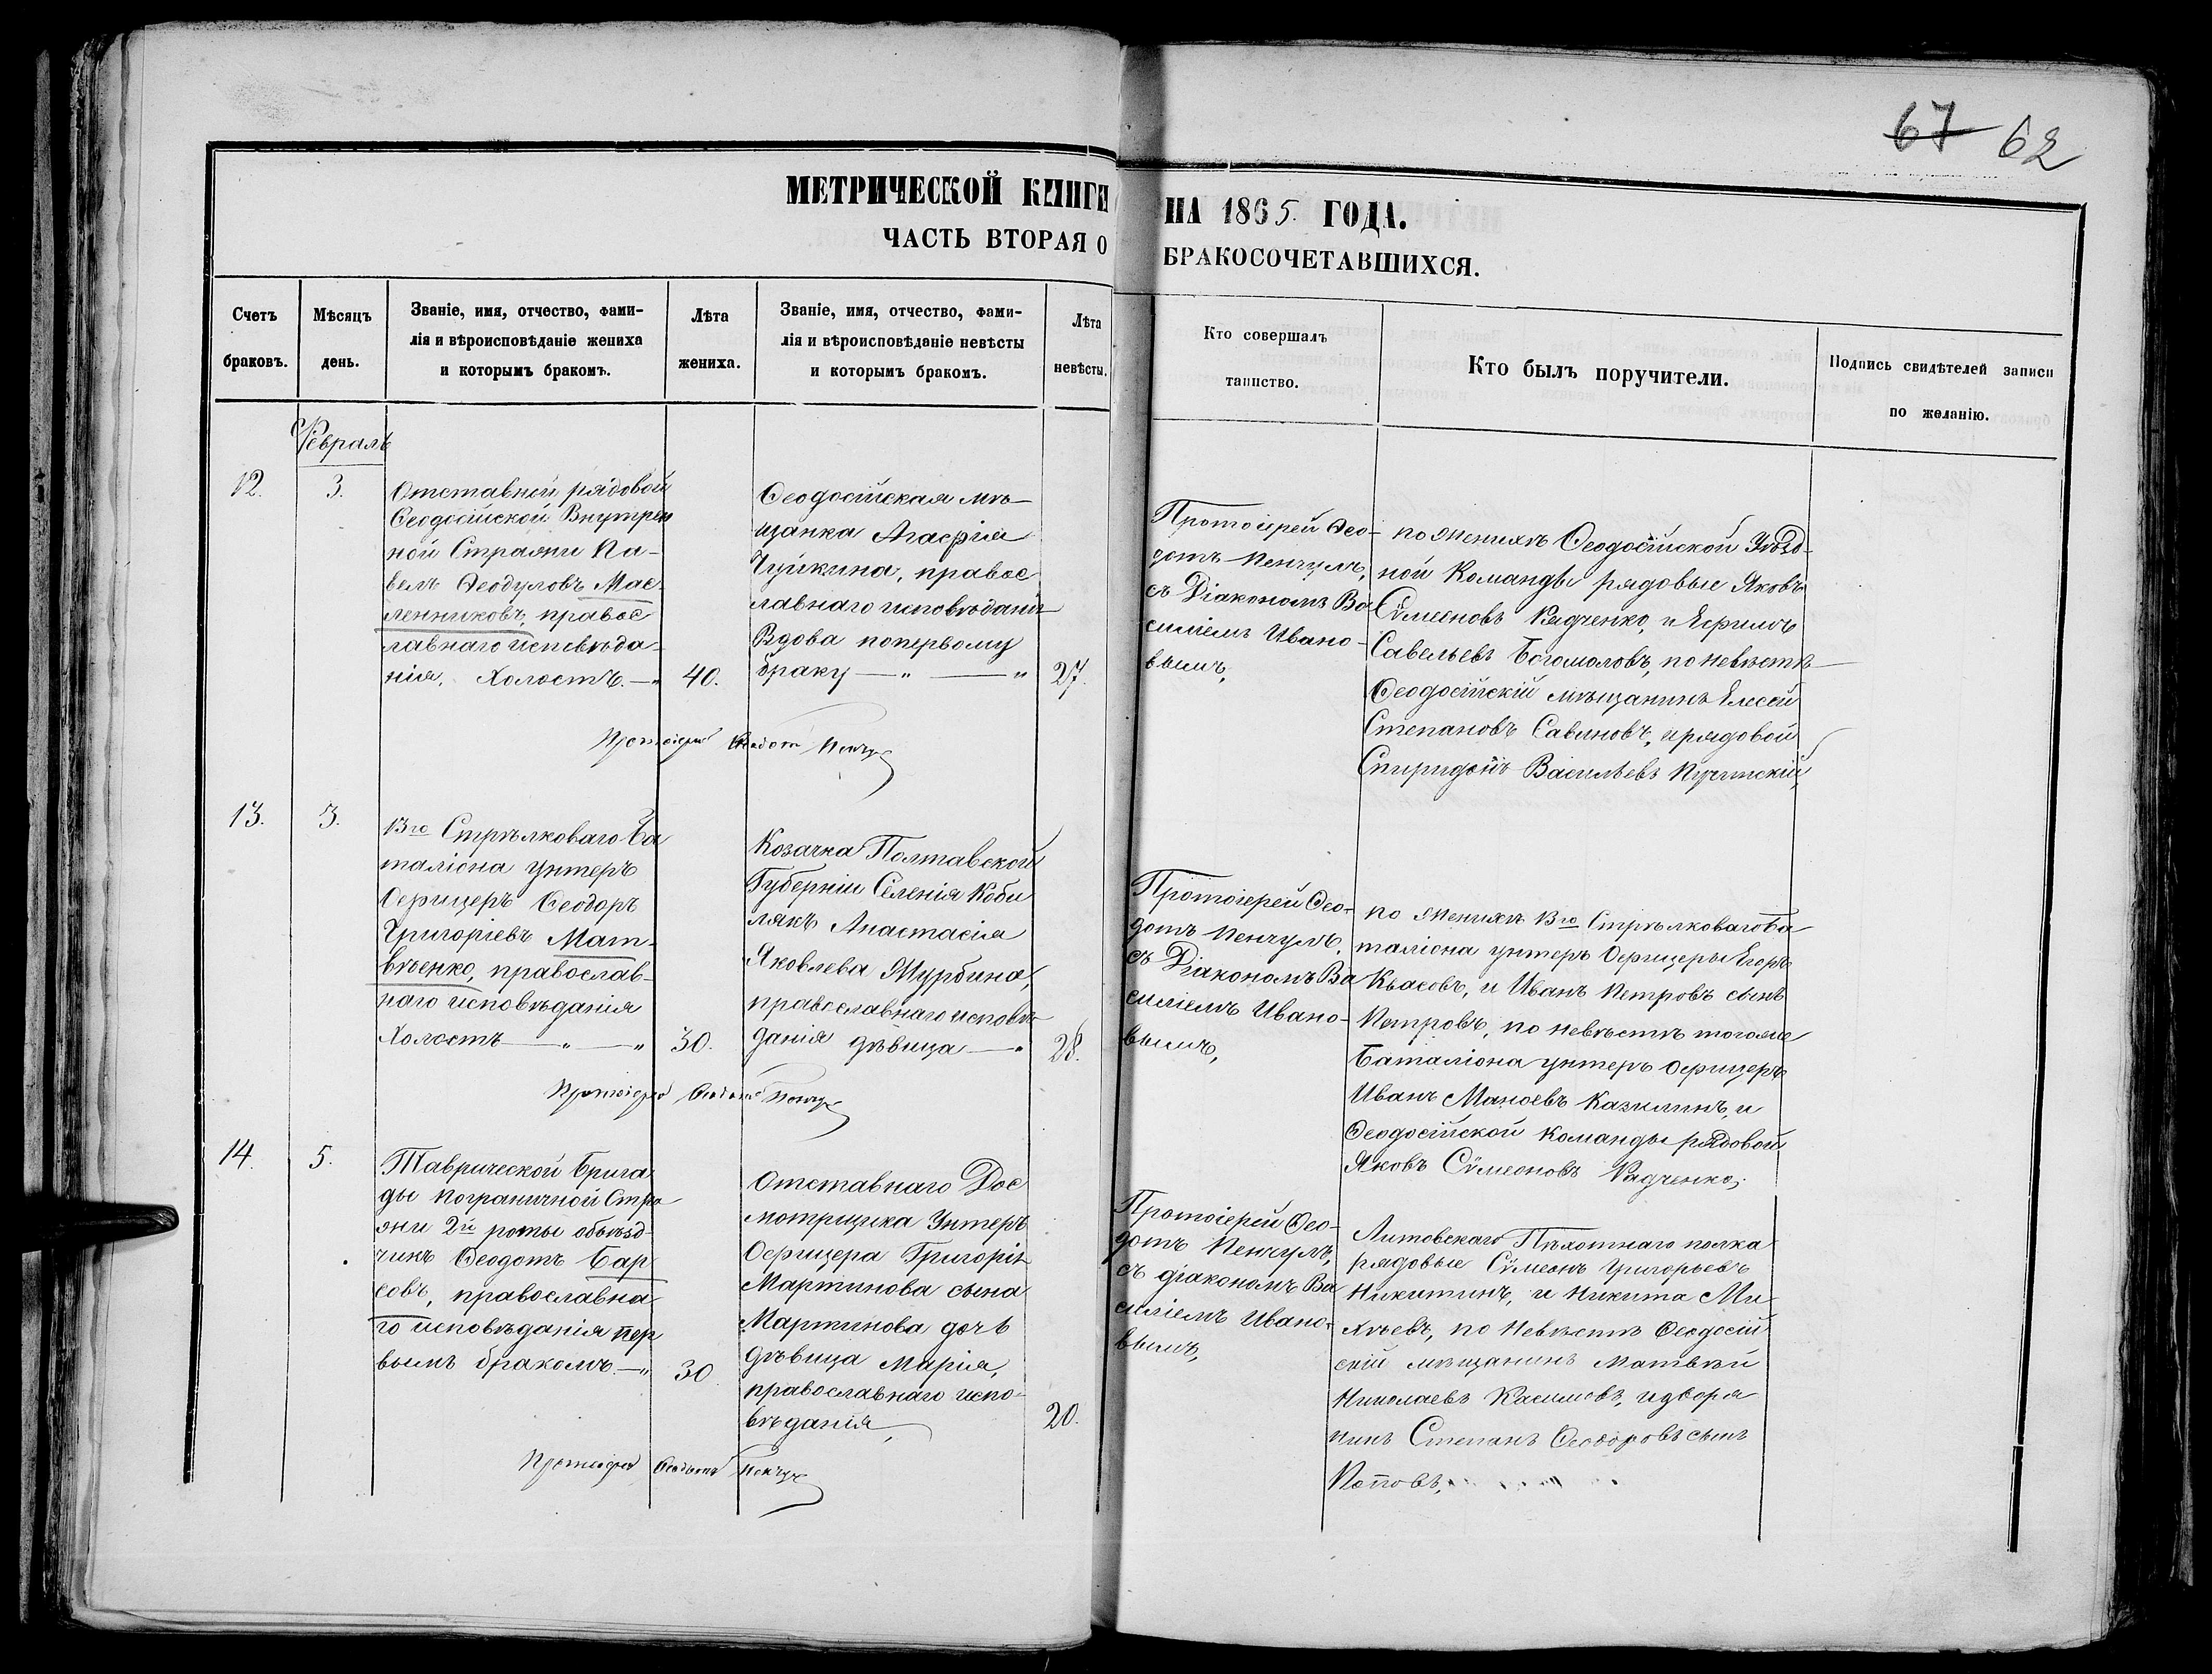 67 62
МЕТРИЧЕСКОЙ КНИГИ НА 1865 ГОДА.
ЧАСТЬ ВТОРАЯ О БРАКОСОЧЕТАВШИХСЯ.
Счетъ
браковъ.
Мѣсяцъ
день.
Званіе, имя, отчество, фами-
лія и вѣроисповѣданіе жениха
и которымъ бракомъ.
Лѣта
жениха.
Званіе, имя, отчество, фами-
лія и вѣроисповѣданіе невѣсты
и которымъ бракомъ.
Лѣта
невѣсты.
Кто совершалъ
таинство.
Кто былъ поручители.
Подпись свидѣтелей записи
по желанію.
Февраль
12.
3.
Отставной рядовой
Ѳеодосійской Внутрен
ной Стражи Па-
велъ Ѳеодуловъ Мас-
ленниковъ, правос
лавнаго исповѣда-
нія, Холостъ. — „
40.
Ѳеодосійская мѣ-
щанка Агафія
Чуйкина, правос
лавнаго исповѣданія
Вдова поперву
браку — „ — „
27.
Протоіерей Ѳео-
дотъ Пенчулъ,
съ Діакономъ Ва
силіемъ Ивано-
вымъ,
по женихѣ Ѳеодосійской Уѣзд-
ной Команды рядовые Яковъ
Сѵмеоновъ Радченко, и Ефимъ
Савельевъ Богомоловъ, по невѣстѣ
Ѳеодосійскій мѣщанинъ Елесей
Степановъ Савиновъ, и рядовой
Спиридонъ Васильевъ
Протоіерей Ѳеодотъ Пенчулъ
13.
3.
13го Стрѣлковаго Ба
таліона унтеръ
Офицеръ Ѳеодоръ
Григоріевъ Мат-
вѣенко, православ-
наго исповѣданія
Холостъ — „ — „
30.
Козачка Полтавской
Губерніи Селенія Коби
лякъ Анастасія
Яковлева Журбина,
православнаго исповѣ
данія дѣвица — „
28.
Протоіерей Ѳео-
дотъ Пенчулъ,
съ Діакономъ Ва
силіемъ Ивано-
вымъ,
по женихѣ 13го Стрѣлковаго Ба
таліона унтеръ Офицеры Егоръ
Квасовъ, и Иванъ Петровъ сынъ
Петровъ, по невѣстѣ тогоже
Баталіона унтеръ офицеръ
Иванъ Казилинъ, и
Ѳеодосійской команды рядовой
Яковъ Сѵмеоновъ Радченко,
Протоіерей Ѳеодотъ Пенчулъ
14.
5.
Таврической Брига
ды пограничной Стра
жи 2й роты объѣзд-
чикъ Ѳеодотъ Бар
совъ, православна
го исповѣданія пер
вымъ бракомъ. — „
30.
Отставнаго Дос
мотрщика Унтеръ
Офицера Григорія
Мартинова сына
Мартинова дочь
дѣвица Марія,
православнаго испо-
вѣданія,
20.
Протоіерей Ѳео-
дотъ Пенчулъ,
съ діакономъ Ва
силіемъ Ивано-
вымъ,
Литовскаго Пѣхотнаго полка
рядовые Сѵмеонъ Григорьевъ
Никитинъ, и Никита Ми-
хѣевъ, по невѣстѣ Ѳеодосій
скій мѣщанинъ Матвѣй
Николаевъ Касимовъ, и дворя
нинъ Степанъ Ѳеодоровъ сынъ
Поповъ,
Протоіерей Ѳеодотъ Пенчулъ